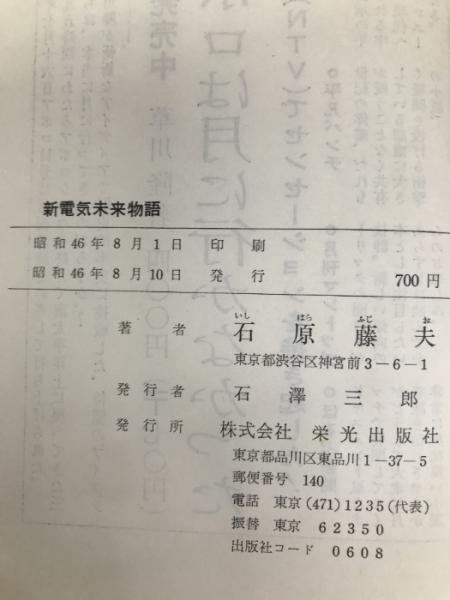 新電気未来物語
昭和46年8月1日 印刷
昭和46年8月10日 発行
700円
いし はら ふじ お
著者 石原藤夫
東京都渋谷区神宮前3-6-1
発行者 石澤三郎
発行所 株式会社 栄光出版社
東京都品川区東品川1-37-5
郵便番号 140
電話 東京(471)1235(代表)
振替 東京 62350
出版社コード 0608